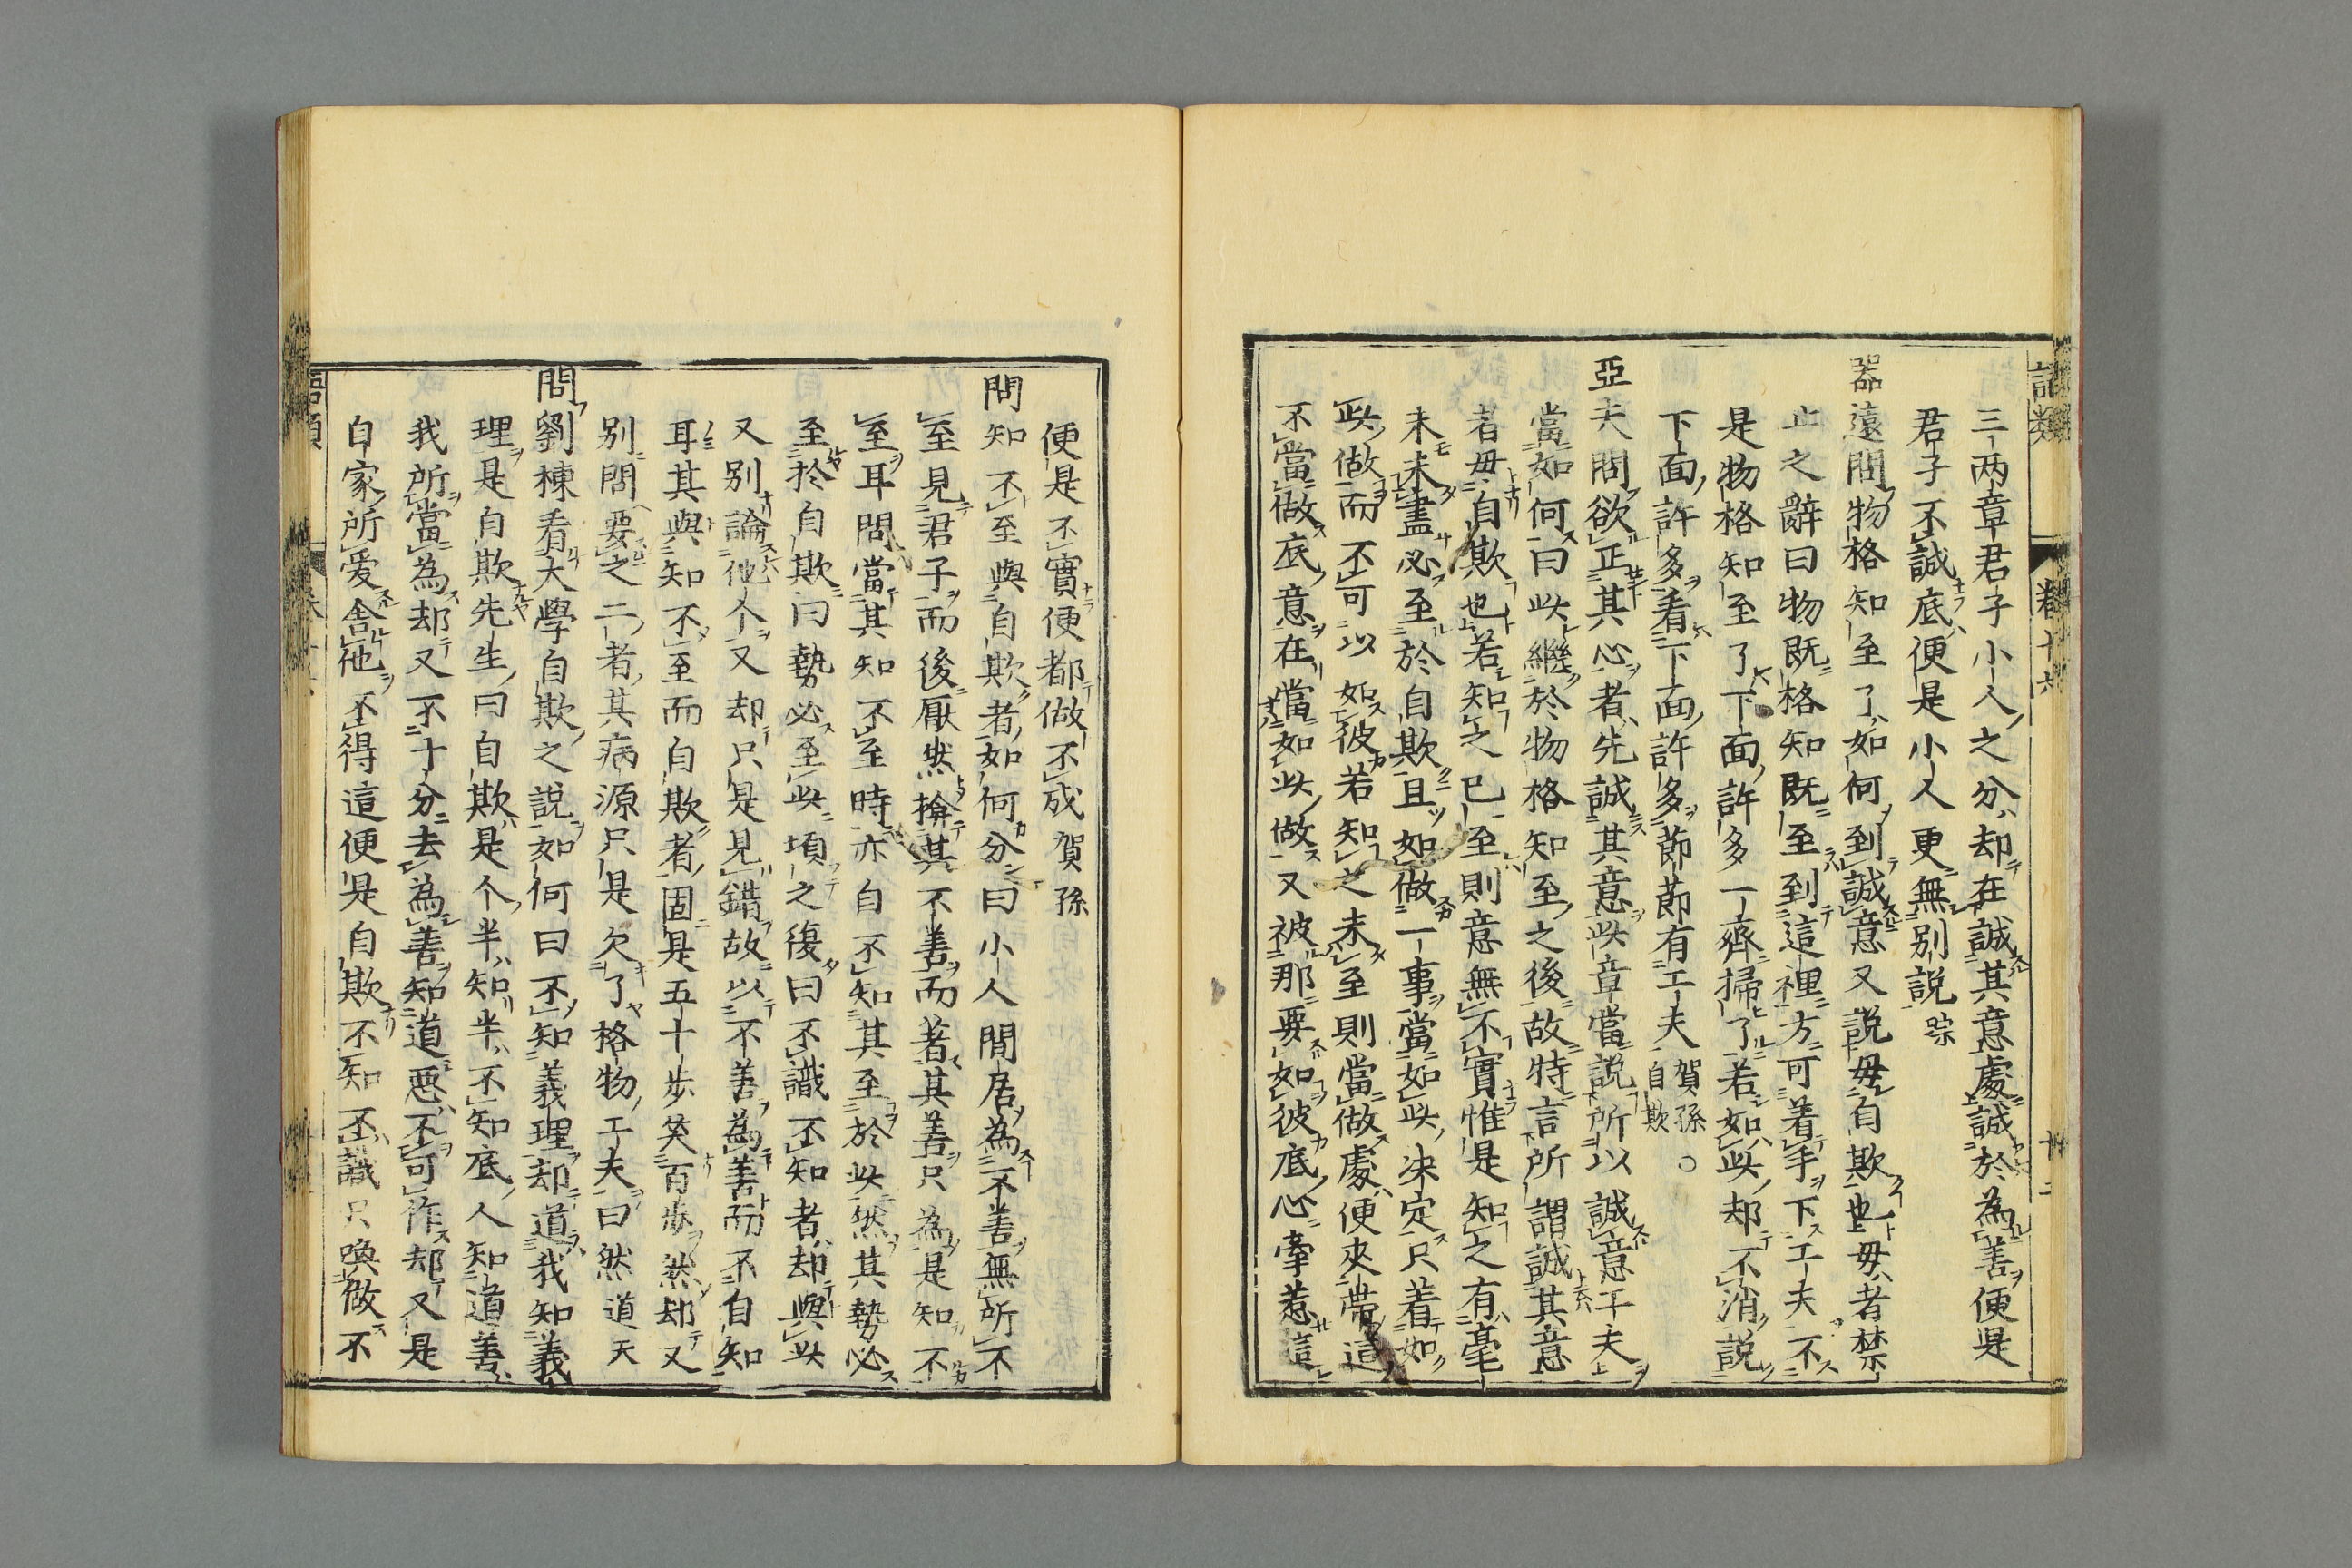 語類
卷十六
三兩章君子小人之分却在誠其意處誠於為善便是
君子不誠底便是小人更無別説琮
器遠問物格知至了如何到誠意又説毋自欺也毋者禁
止之辭曰物既格知既至到這裡方可着手下工夫不
是物格知至了下面許多一齊掃了若如此却不消説
下面許多看下面許多節節有工夫賀孫自欺○
亞夫問欲正其心者先誠其意此章當説所以誠意工夫
當如何曰此繼於物格知至之後故特言所謂誠其意
者毋自欺也若知之已至則意無不實惟是知之有毫
未未盡必至於自欺且如做一事當如此決定只着如
此做而不可以如彼若知之未至則當做處便夾帶這
不當做底意在當如此做又被那要如彼底心牽惹這
便是不實便都做不成賀孫
問知不至與自欺者如何分曰小人間居為不善無所不
至見君子而後厭然揜其不善而著其善只為是知不
至耳問當其知不至時亦自不知其至於此然其勢必
至於自欺曰勢必至此頃之復曰不識不知者却與此
又別論他个又却只是見錯故以不善為善而不自知
耳其與知不至而自欺者固是五十步笑百步然却又
別問要之二者其病源只是欠了格物工夫曰然道夭
問劉棟看大學自欺之説如何曰不知義理却道我知義
理是自欺先生曰自欺是个半知半不知底人知道善
我所當為却又不十分去為善知道惡不可作却又是
自家所爱舍他不得這便是自欺不知不識只喚做不